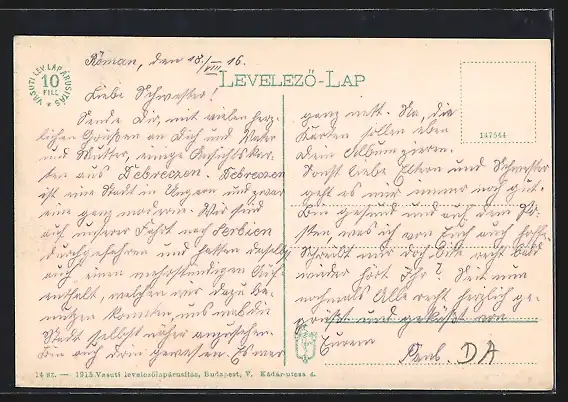 Róman, den 18/VIII 16.
VASUTI LEV. LAPÁRUSITÁS
10
FILL
LEVELEZŐ-LAP
147544
Liebe Schwester!
Sende Dir, mit vielen herz-
lichen Grüßen an Dich und Vater
und Mutter, einige Ansichtskar-
ten aus Debreczen. Debreczen
ist eine Stadt in Ungarn und zwar
eine ganz moderne. Wir sind
auf unserer Fahrt nach Serbien
durchgefahren und hatten daselbst
auch einen mehrstündigen Auf-
enthalt, welchen wir dazu be-
nutzen konnten, uns mal die
Stadt selbst näher anzusehen.
Bin auch drin gewesen. Es war
ganz nett. Na, die
Karten sollen eben
Dein Album zieren.
Sonst liebe Eltern und Schwester
geht es mir immer noch gut.
Bin gesund und auf dem Po-
sten was ich von Euch auch hoffe.
Schreibt mir doch bitte recht bald
wieder hört Ihr? Seit nun
nochmals Alle recht herzlich ge-
grüßt und geküßt von
Eurem
Paul. DA
14 sz. — 1915 Vasuti levelezőlapárusitás, Budapest, V. Kádár-utcza 4.